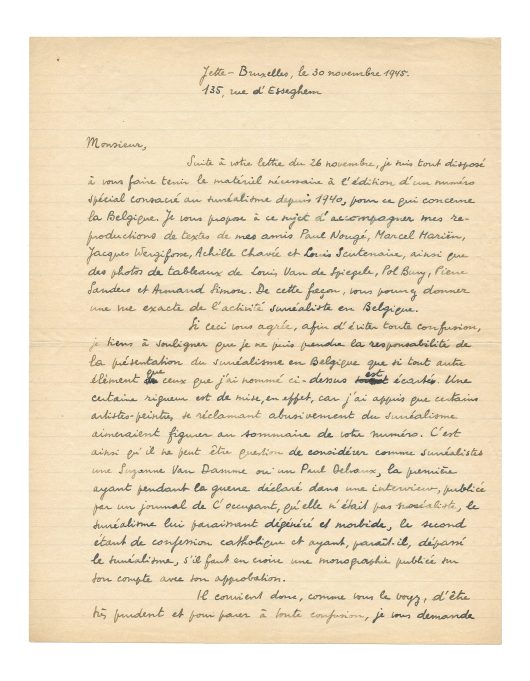 Jette - Bruxelles, le 30 novembre 1945.
135, rue d'Esseghem
Monsieur,
Suite à votre lettre du 26 novembre, je suis tout disposé
à vous faire tenir le matériel nécessaire à l'édition d'un numéro
spécial consacré au surréalisme depuis 1940, pour ce qui concerne
la Belgique. Je vous propose à ce sujet d'accompagner mes re-
productions de textes de mes amis Paul Nougé, Marcel Mariën,
Jacques Wergifosse, Achille Chavée et Louis Scutenaire, ainsi que
des photos de tableaux de Louis Van de Spiegele, Pol Bury, Pierre
Sanders et Armand Simon. De cette façon, vous pourrez donner
une vue exacte de l'activité surréaliste en Belgique.
Si ceci vous agrée, afin d'éviter toute confusion,
je tiens à souligner que je ne puis prendre la responsabilité de
la présentation du surréalisme en Belgique que si tout autre
élément que ceux que j'ai nommé ci-dessus est écarté. Une
certaine rigueur est de mise, en effet, car j'ai appris que certains
artistes-peintres, se réclamant abusivement du surréalisme
aimeraient figurer au sommaire de votre numéro. C'est
ainsi qu'il ne peut être question de considérer comme surréalistes
une Suzanne Van Damme ou un Paul Delvaux, la première
ayant pendant la guerre déclaré dans une interview, publiée
par un journal de l'occupant, qu'elle n'était pas surréaliste, le
surréalisme lui paraissant dégénéré et morbide, le second
étant de confession catholique et ayant, paraît-il, dépassé
le surréalisme, s'il faut en croire une monographie publiée sur
son compte avec son approbation.
Il convient donc, comme vous le voyez, d'être
très prudent et pour parer à toute confusion, je vous demande